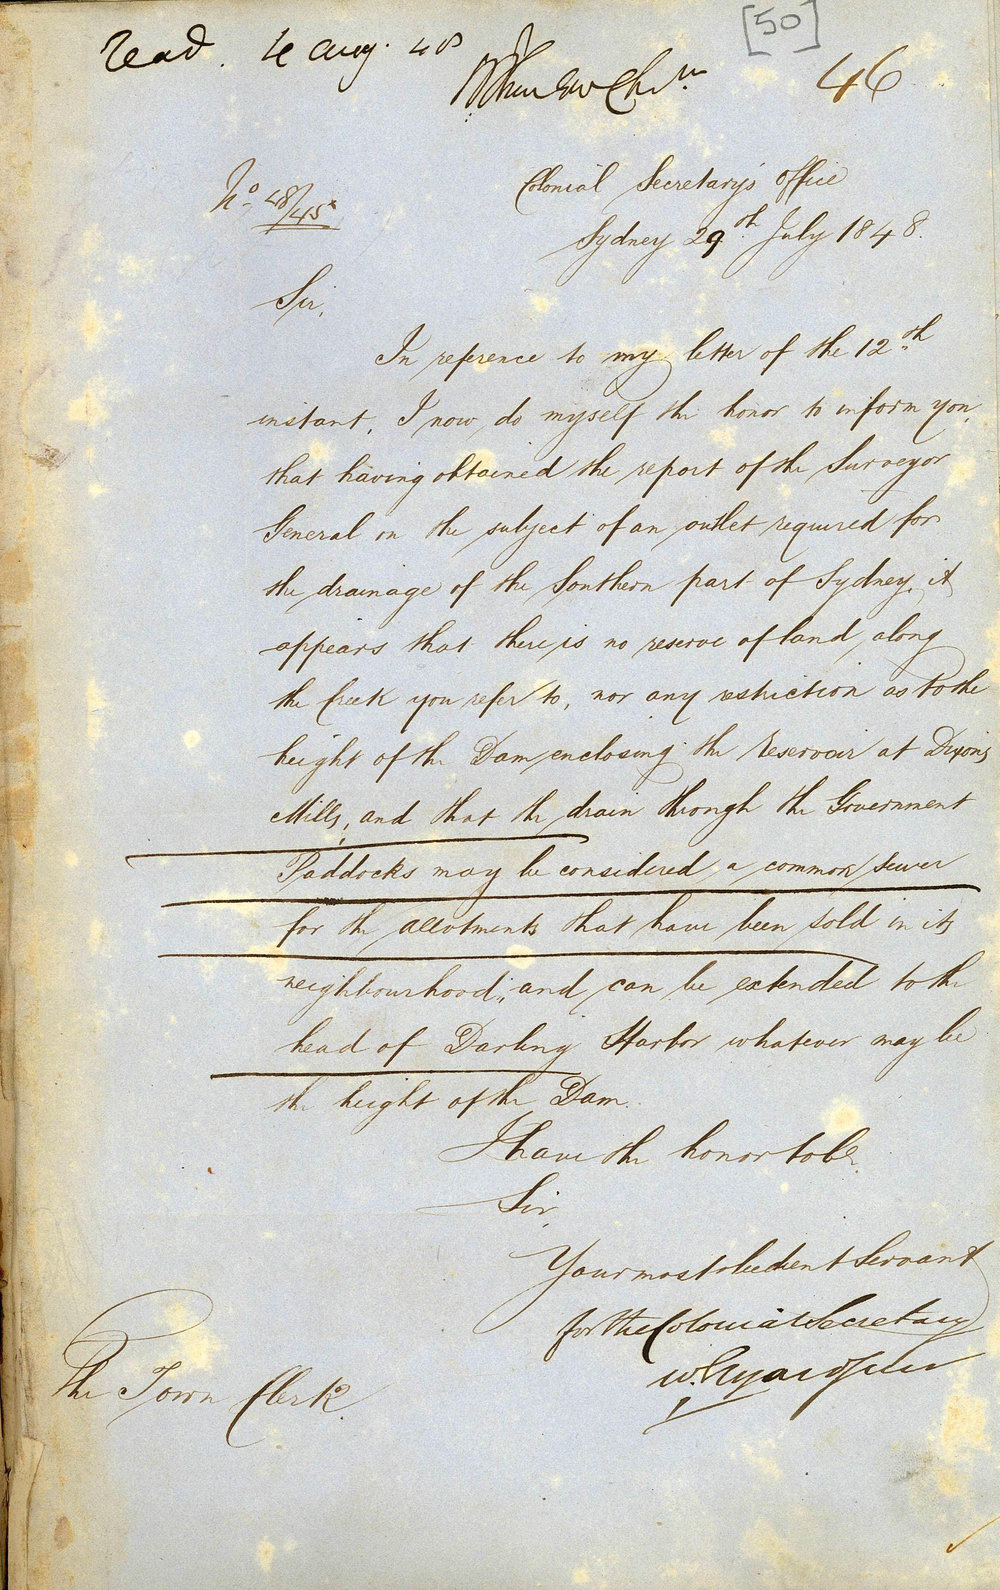 [50]
Read. 4 Aug. 48
46
No. 48/45
Colonial Secretary's Office
Sydney 29th July 1848.
Sir,
In reference to my letter of the 12th
instant, I now do myself the honor to inform you,
that having obtained the report of the Surveyor
General on the subject of an outlet required for
the drainage of the Southern part of Sydney, it
appears that there is no reserve of land along
the Creek you refer to, nor any restriction as to the
height of the Dam enclosing the Reservoir at Dixon's
Mills, and that the drain through the Government
Paddocks may be considered a common sewer
for the allotments that have been sold in its
neighbourhood; and can be extended to the
head of Darling Harbor whatever may be
the height of the Dam.
I have the honor to be
Sir,
Your most obedient Servant
for the Colonial Secretary
W.
The Town Clerk